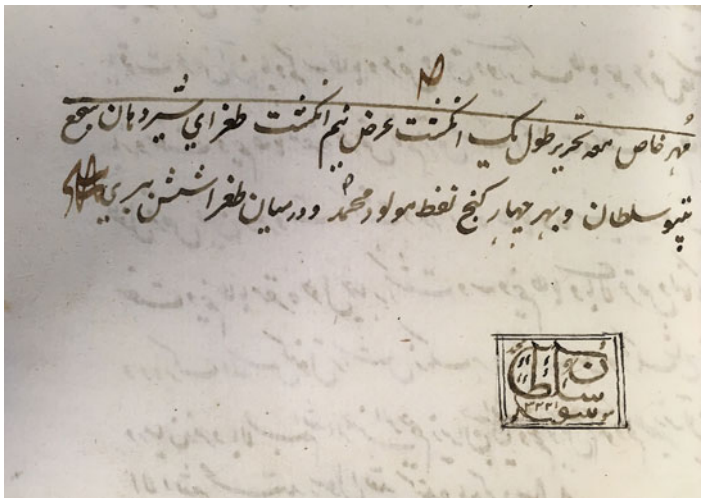 مُهر خاص معه تحریر طول یک انگشت عرض نیم انگشت طغرای شیر دهان سجع
تیپو سلطان و بهر چهار کنج نقط مولود محمد و درمیان طغرا شش ببری
سلطان